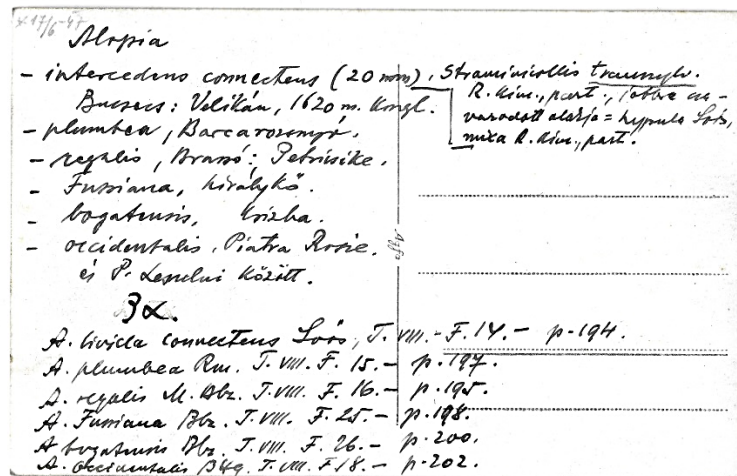 17/6-47
Alopia
- intercedens connectens (20 mm), Straminicollis transsylv.
Bucsecs: Velikán, 1620 m. Kongl.
R. Kim., part.,
= hypula Soós,
mixta R. Kim., part.
- plumbea, Barcarozsnyó.
- regalis, Brassó: Petricsike.
- Fussiana, Királykő.
- bogatensis, Krizba.
- occidentalis, Piatra Rosie.
és P. Lesului között.
3x.
A. livida connectens Soós, T. VIII. - F. 14. - p. 194.
A. plumbea Rm. T. VIII. F. 15. - p. 197.
A. regalis M. Blz. T. VIII. F. 16. - p. 195.
A. Fussiana Blz. T. VIII. F. 25. - p. 198.
A. bogatensis Blz. T. VIII. F. 26. - p. 200.
A. occidentalis T. VIII. F 18. - p. 202.